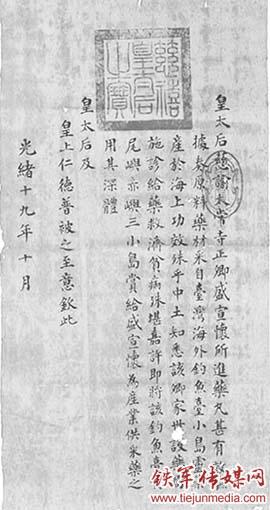 慈禧
皇太后
之寶
皇太后慈諭太常寺正卿盛宣懷所進藥丸甚有
據奏原料藥材來自臺灣海外釣魚臺小島靈
產於海上功效殊乎中土知悉該卿家世設藥
施診給藥救濟貧病殊堪嘉許即將該釣魚臺
尾嶼赤嶼三小島賞給盛宣懷為產業供采藥之
用其深體
皇太后及
皇上仁德普被之至意欽此
光緒十九年十月
铁军传媒网
www.tiejunmedia.com